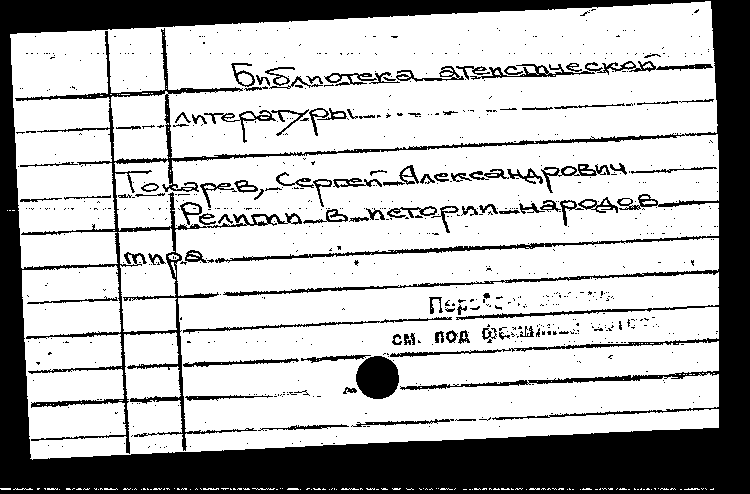 Библиотека атеистической
литературы
Токарев, Сергей Александрович
Религии в истории народов
мира
см. под фамилией